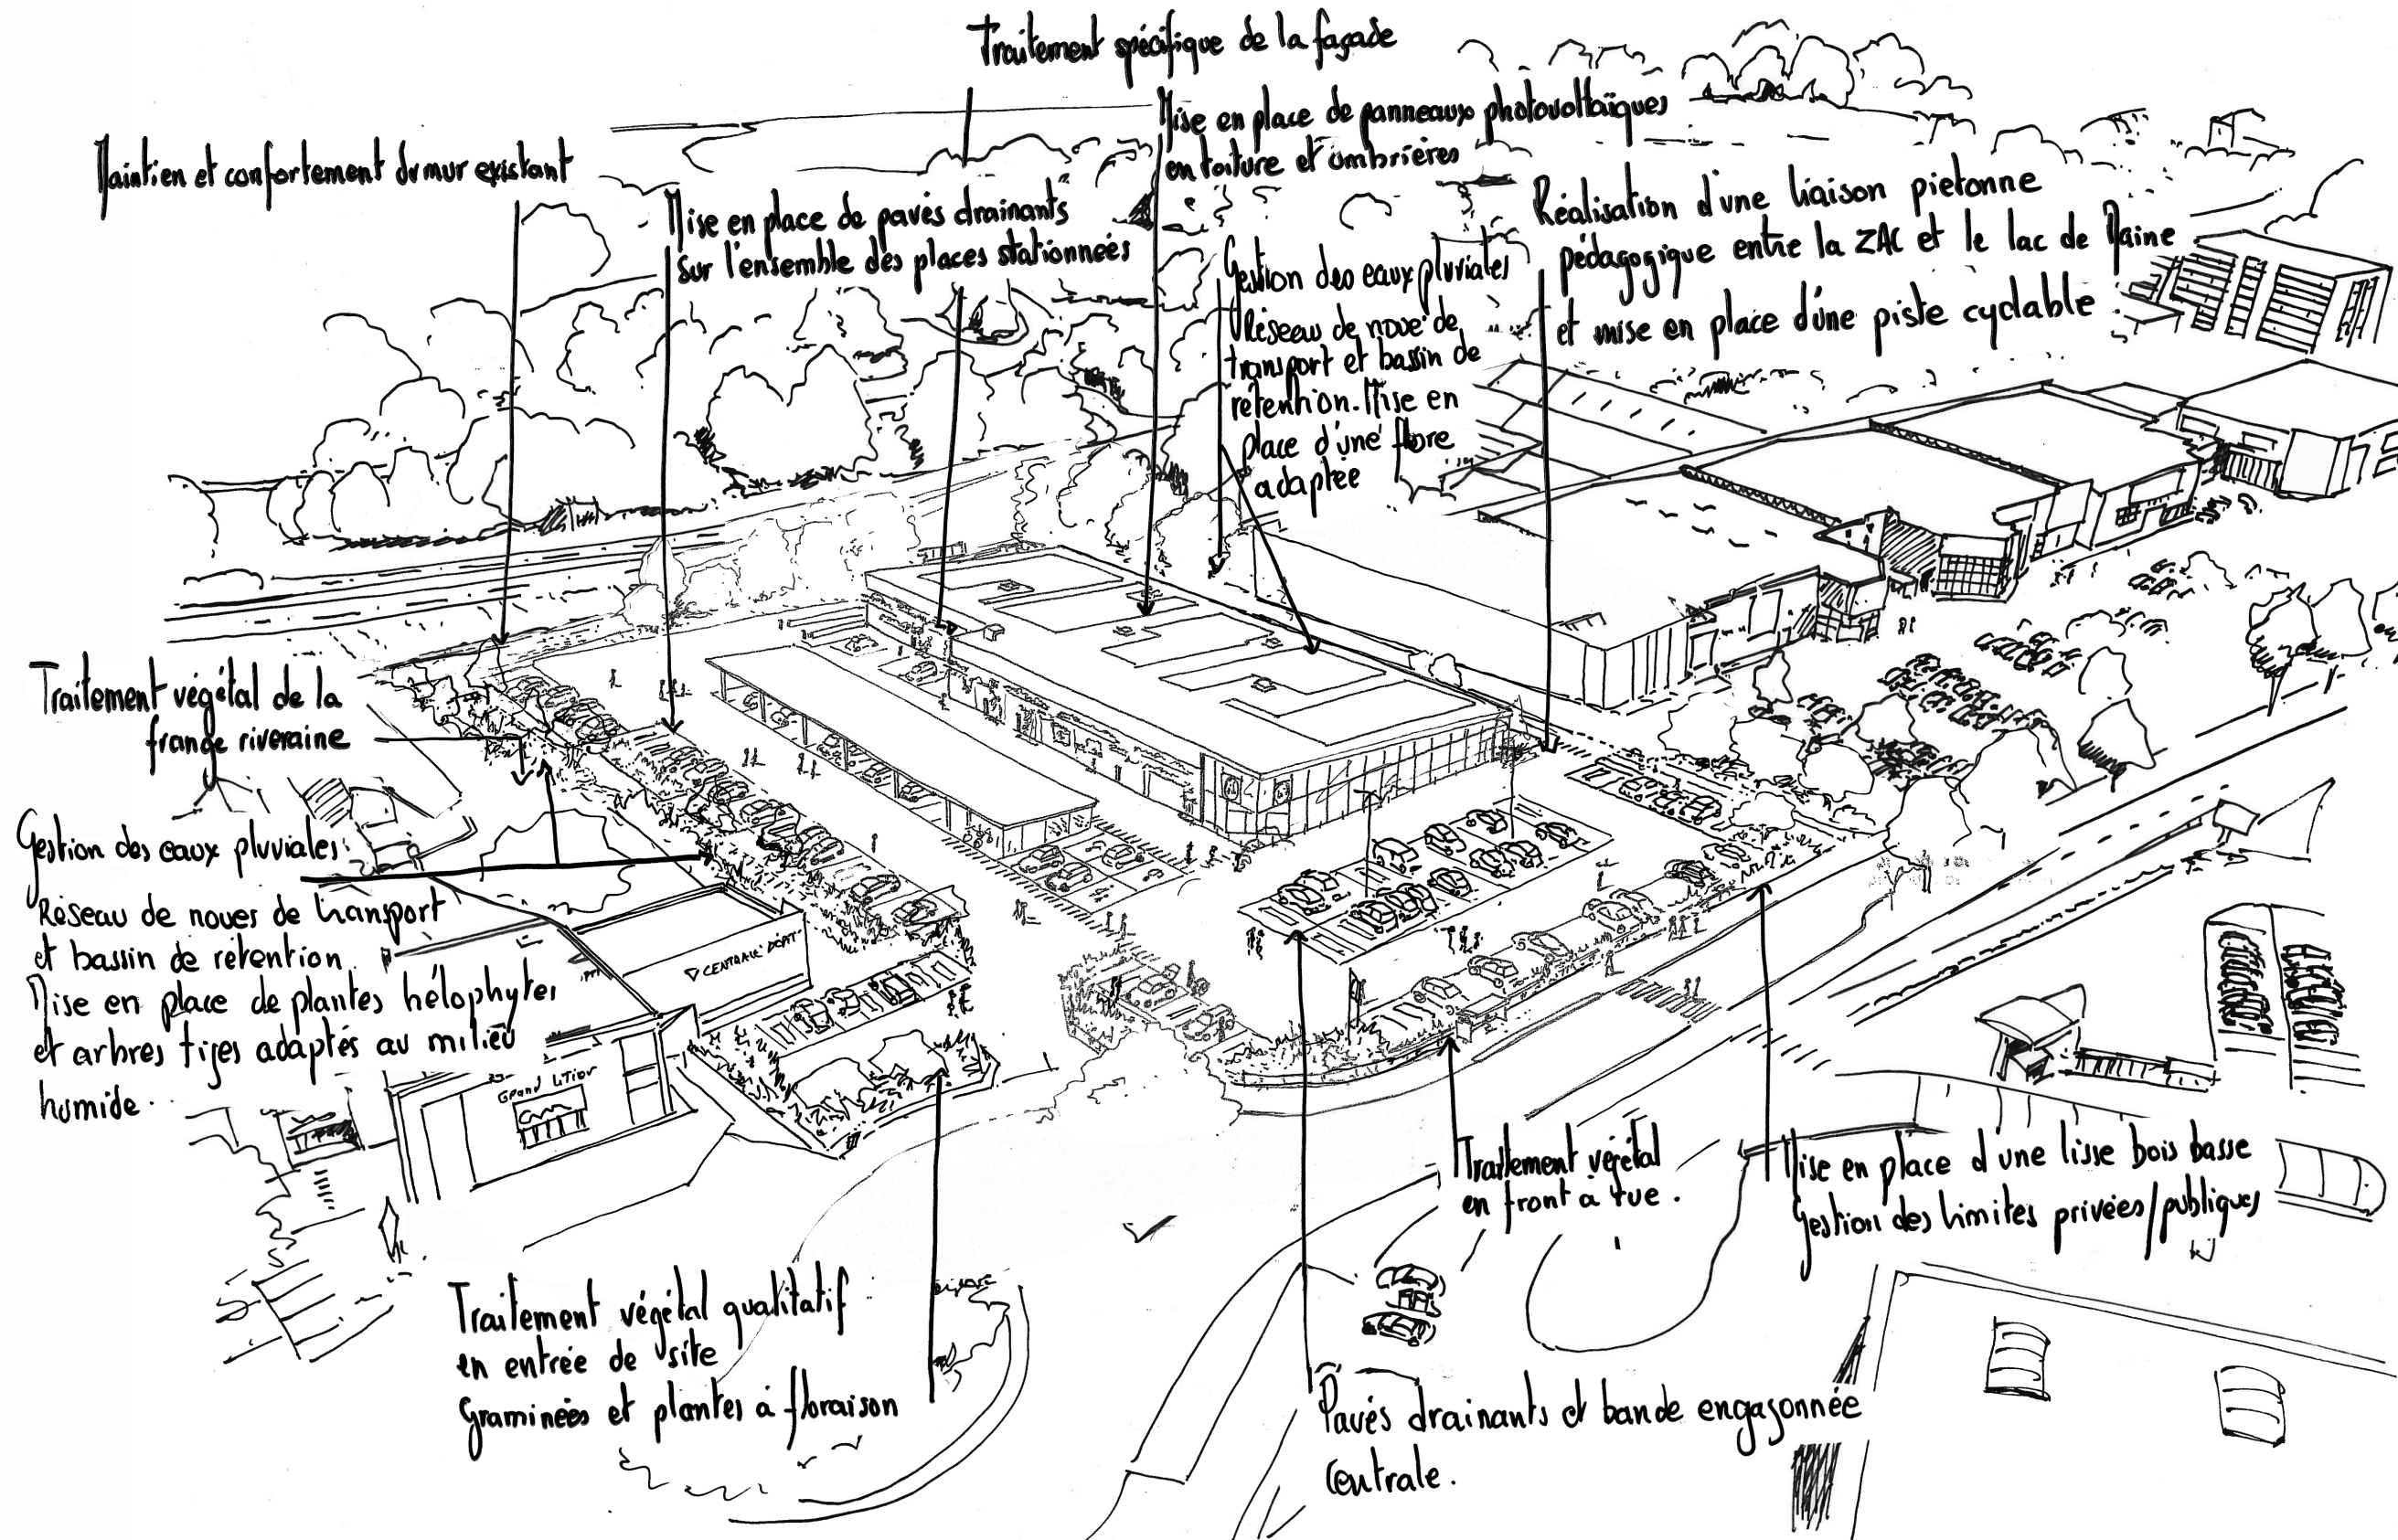 Traitement spécifique de la façade
Mise en place de panneaux photovoltaïques
en toiture et ombrières
Maintien et confortement du mur existant
Mise en place de pavés drainants
sur l'ensemble des places stationnées
Réalisation d'une liaison pietonne
pédagogique entre la ZAC et le lac de Maine
et mise en place d'une piste cyclable
Gestion des eaux pluviales
Réseau de noue de
transport et bassin de
rétention. Mise en
place d'une flore
adaptée
Traitement végétal de la
frange riveraine
Gestion des eaux pluviales
Réseau de noues de transport
et bassin de rétention
Mise en place de plantes hélophytes
et arbres tiges adaptés au milieu
humide.
CENTRALE
Grand
Traitement végétal
en front à rue.
Mise en place d'une lisse bois basse
Gestion des limites privées/publiques
Traitement végétal qualitatif
en entrée de site
Graminées et plantes à floraison
Pavés drainants et bande engazonnée
centrale.